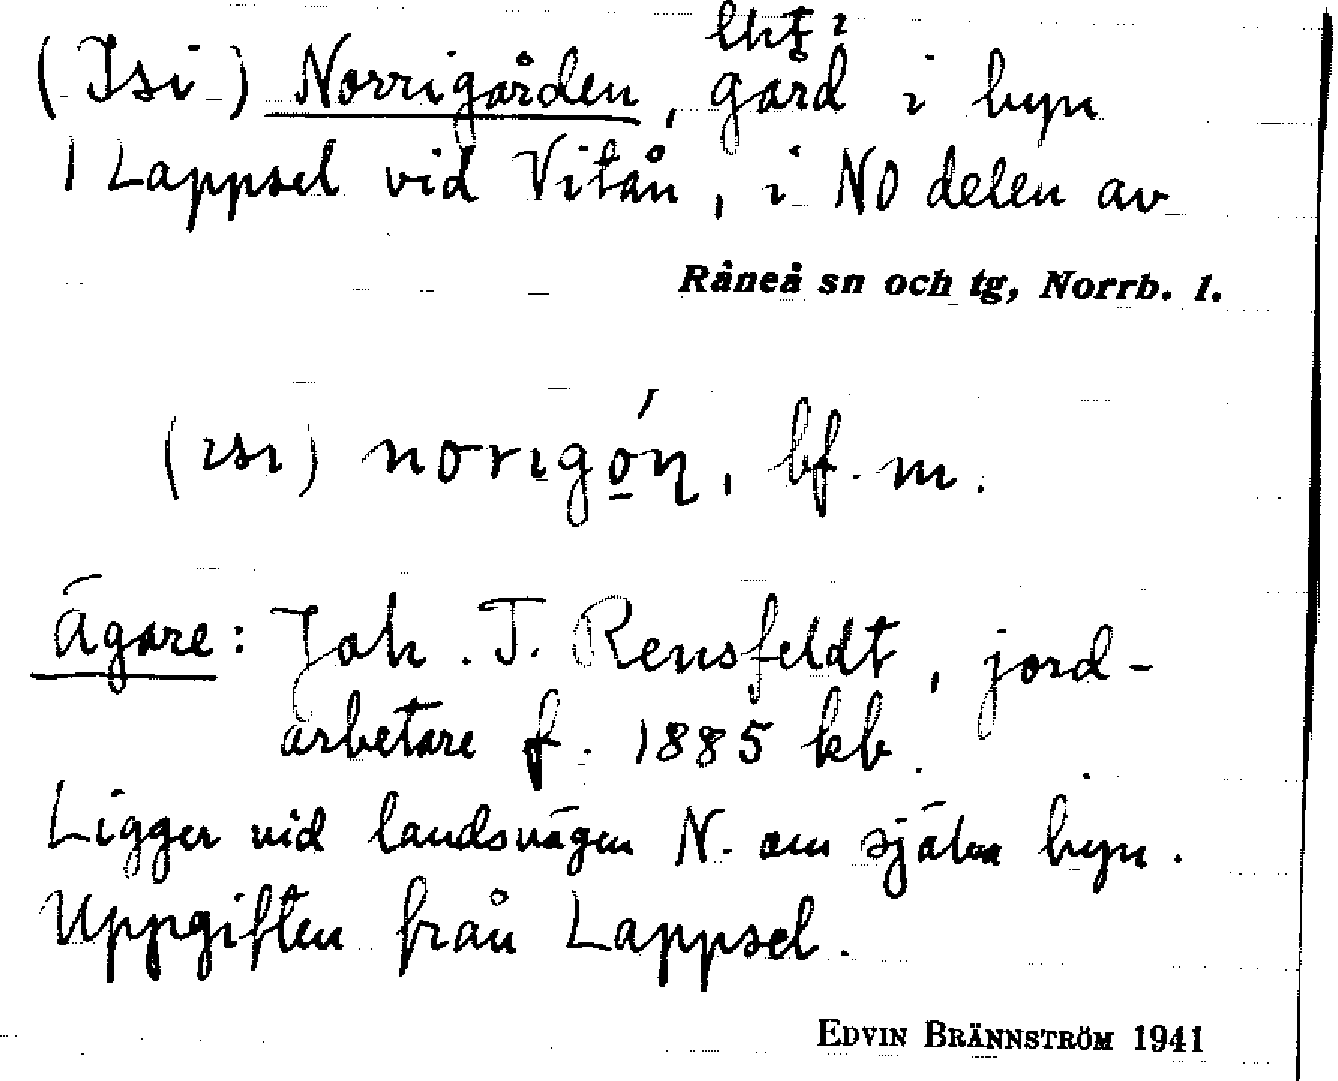 (Isi) Norrigården, gård i byn
1 Lappsel vid Vitån, i NO delen av
Råneå sn och tg, Norrb. l.
(ısı) norıgǫ́ṇ, bf. m.
Ägare: Joh. T. Rensfeldt, jord-
arbetare f. 1885 kb.
Ligger vid landsvägen N. om själva byn.
Uppgiften från Lappsel.
EDVIN BRÄNNSTRÖM 1941